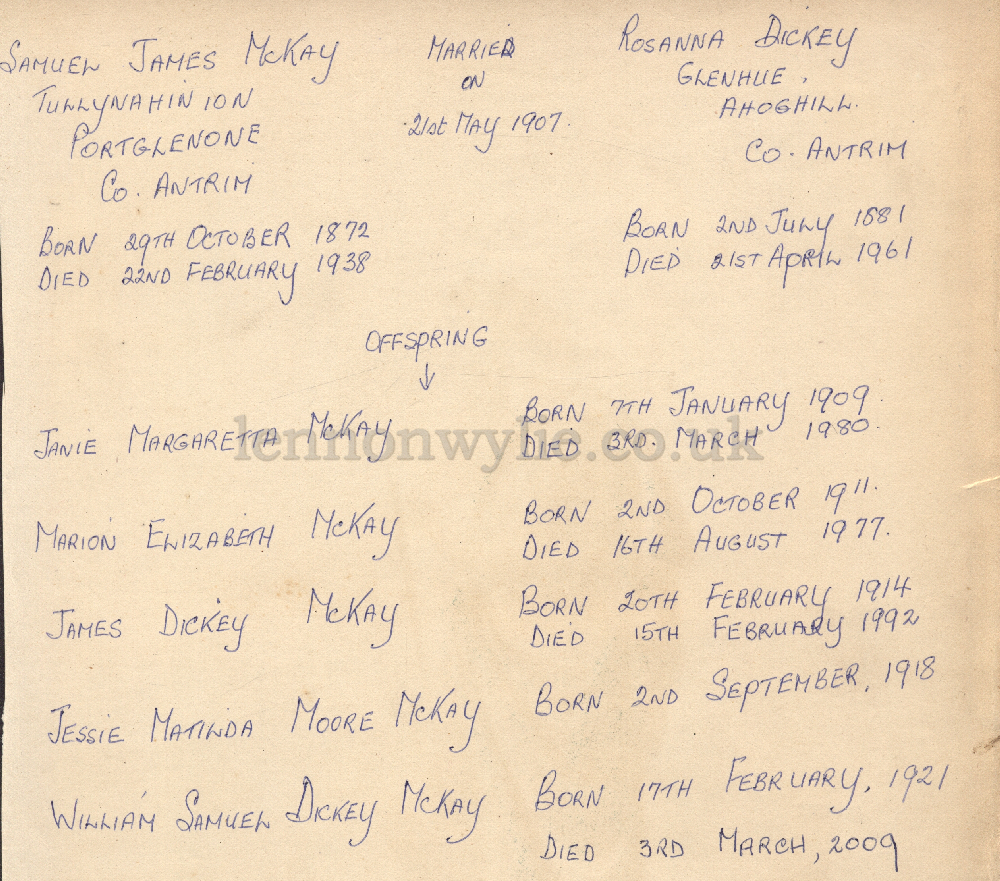 SAMUEL JAMES McKAY
TULLYNAHINION
PORTGLENONE
CO. ANTRIM
BORN 29TH OCTOBER 1872
DIED 22ND FEBRUARY 1938
MARRIED
ON
21st MAY 1907.
ROSANNA DICKEY
GLENHUE.
AHOGHILL.
CO. ANTRIM
BORN 2ND JULY 1881
DIED 21ST APRIL 1961
OFFSPRING
↓
JANIE MARGARETTA McKAY BORN 7TH JANUARY 1909.
DIED 3RD. MARCH 1980.
lennonwylie.co.uk
MARION ELIZABETH McKAY BORN 2ND OCTOBER 1911.
DIED 16TH AUGUST 1977.
JAMES DICKEY McKAY BORN 20TH FEBRUARY 1914
DIED 15TH FEBRUARY 1992
JESSIE MATILDA MOORE McKAY BORN 2ND SEPTEMBER, 1918
WILLIAM SAMUEL DICKEY McKAY BORN 17TH FEBRUARY, 1921
DIED 3RD MARCH, 2009